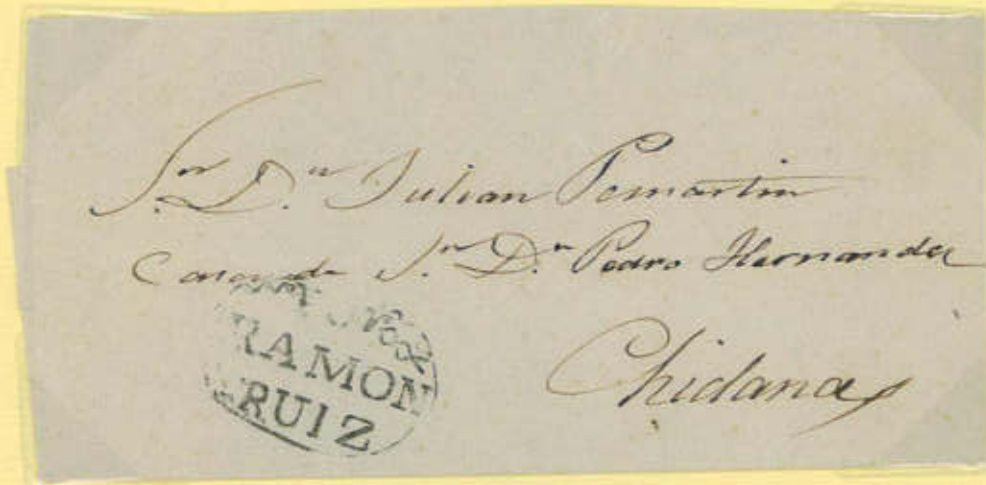 Sr. Dn. Julian Pemartin
Casa de Sr. Dn. Pedro Hernandez
Chiclana
RAMON
RUIZ